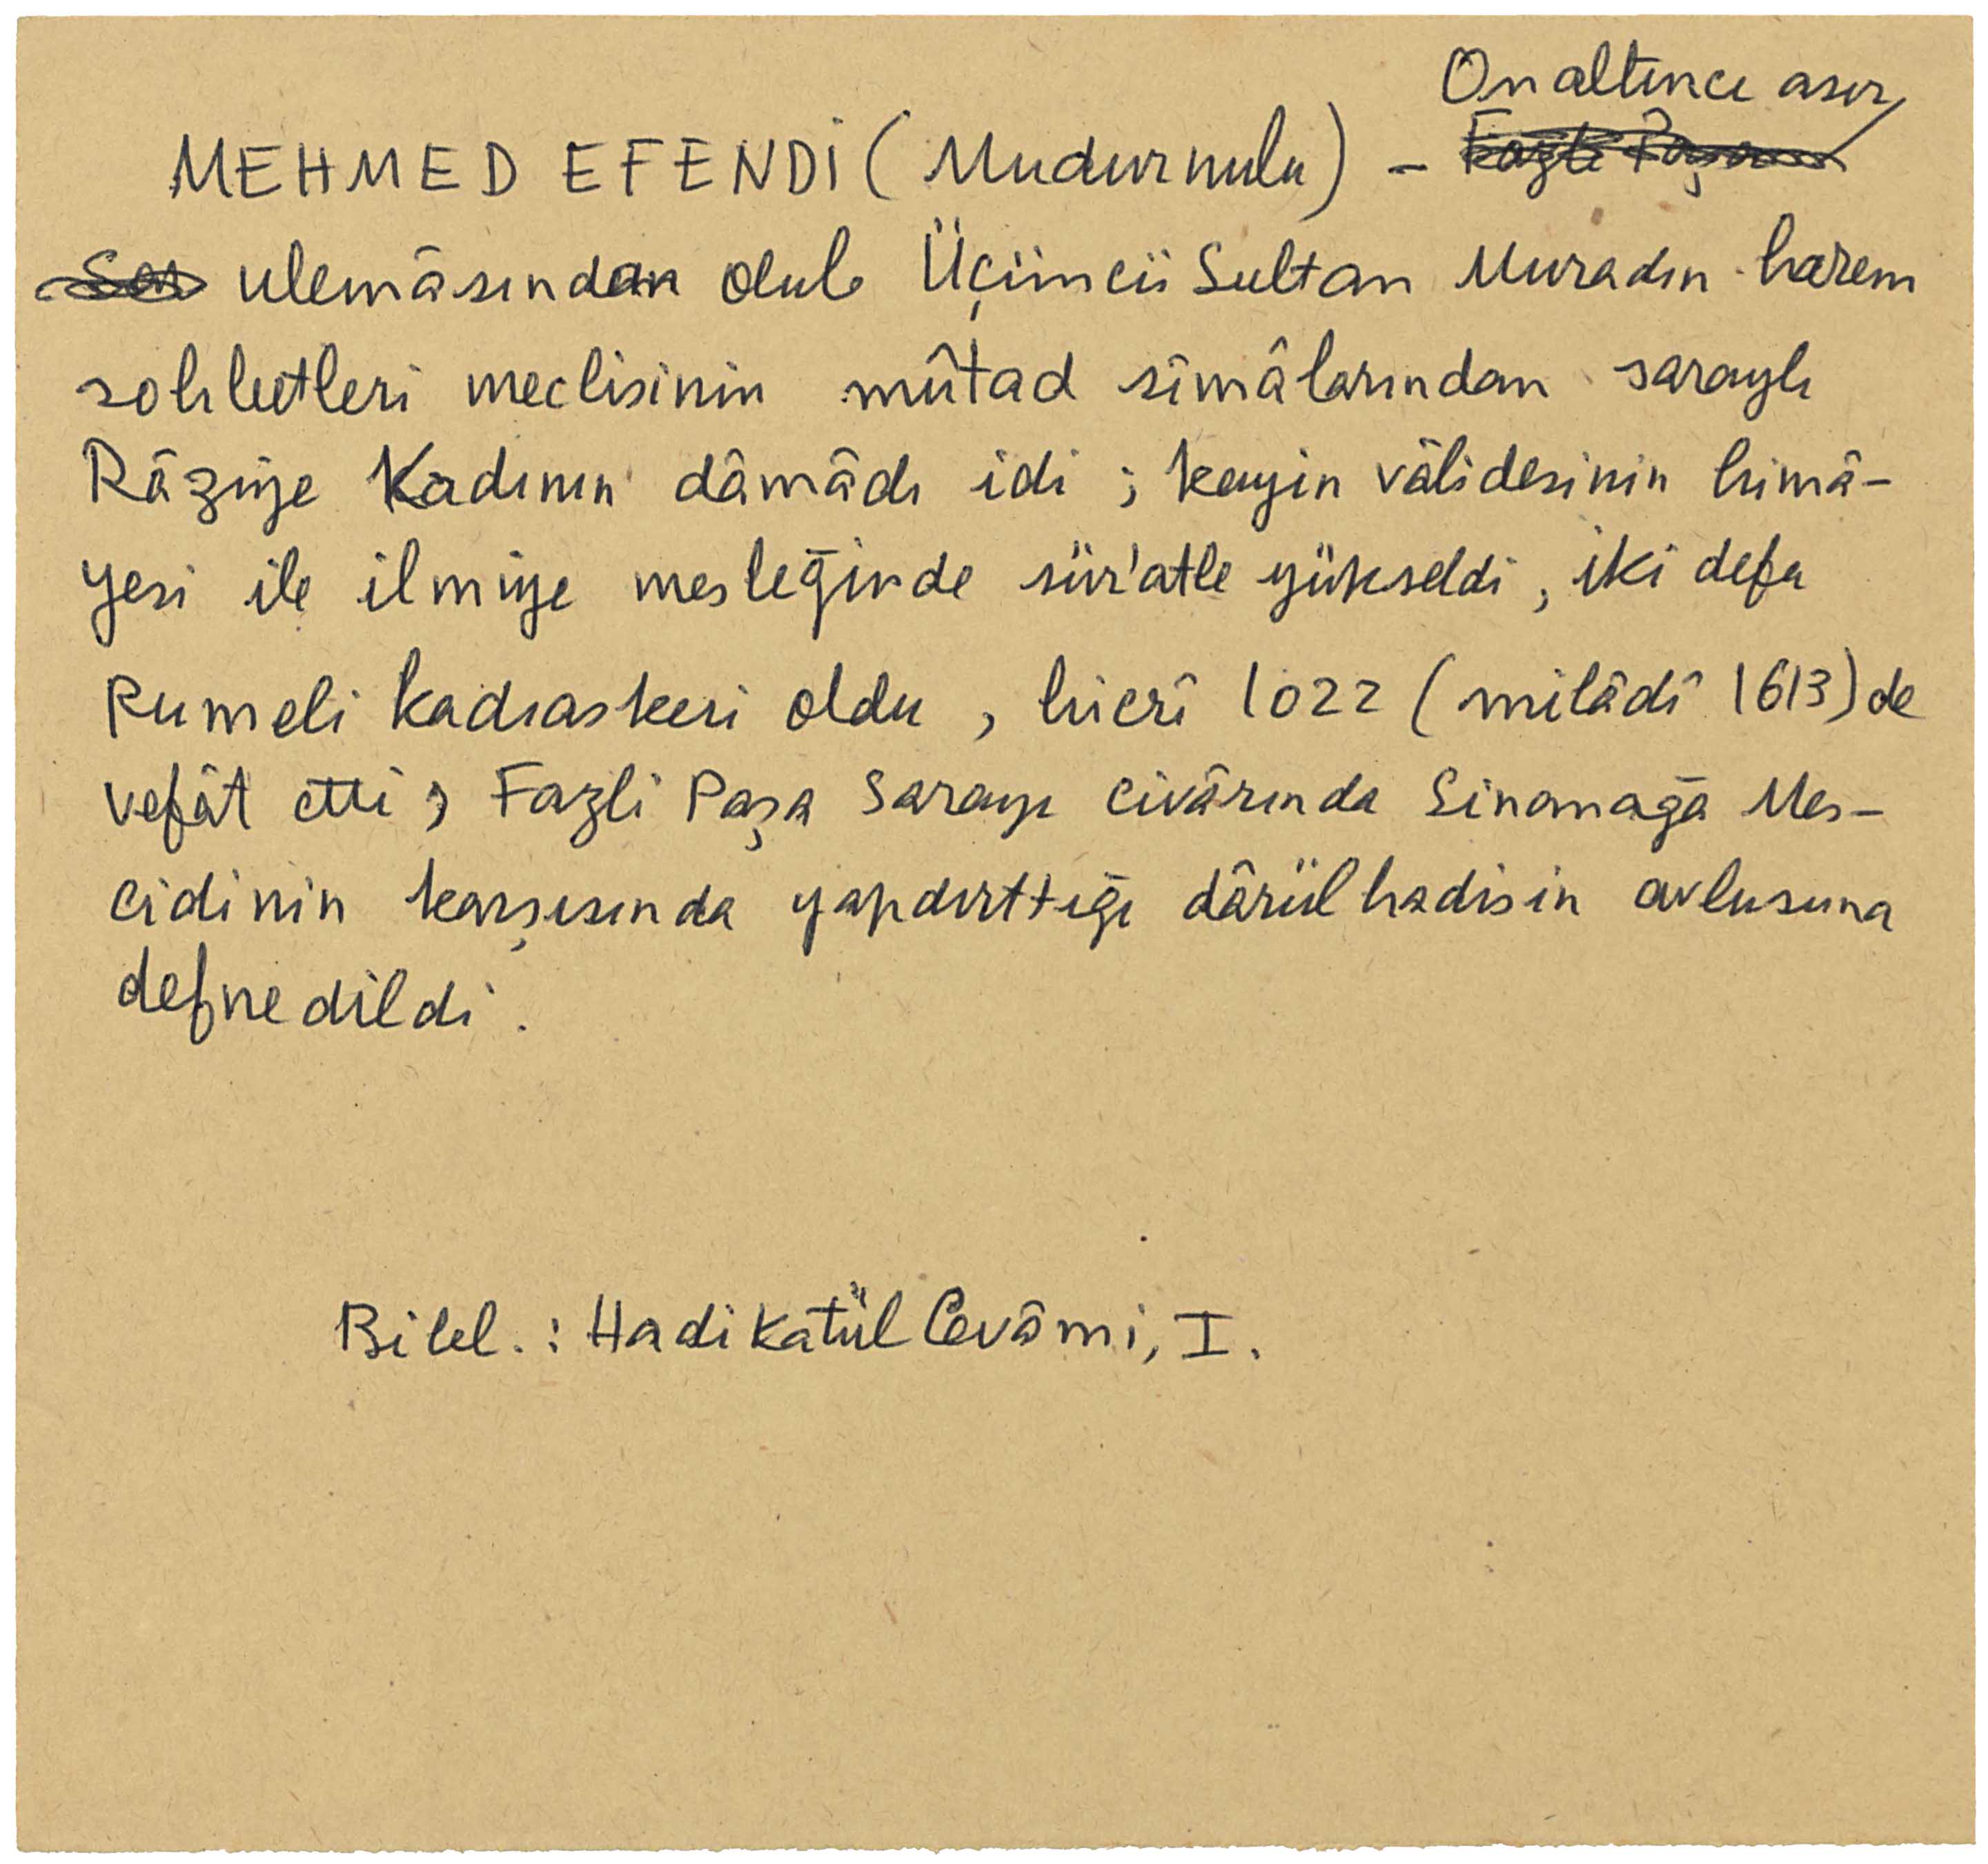 Onaltıncı asır
MEHMED EFENDİ (Mudurnulu) - Fazlı Paşa
ulemâsından olub Üçüncü Sultan Muradın harem
sohbetleri meclisinin mûtad sîmâlarından saraylı
Râziye Kadının dâmâdı idi ; kayin vâlidesinin himâ-
yesi ile ilmiye mesleğinde sür'atle yükseldi, iki defa
Rumeli kadıaskeri oldu, hicrî 1022 (milâdî 1613) de
vefât etti ; Fazli Paşa Sarayı civârında Sinanağa Mes-
cidinin karşısında yapdırttığı dârülhadisin avlusuna
defnedildi.
Bibl. : Hadikatül Cevâmi, I.